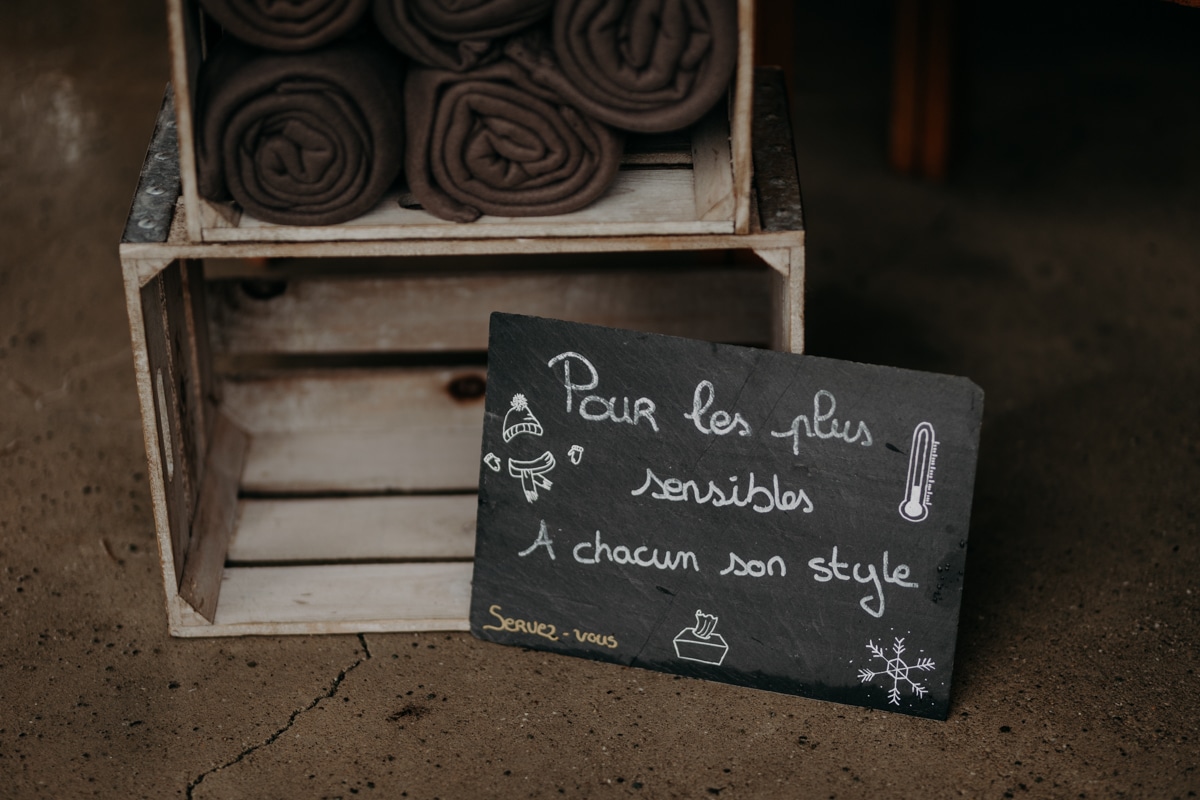 Pour les plus
sensibles
A chacun son style
Servez-vous